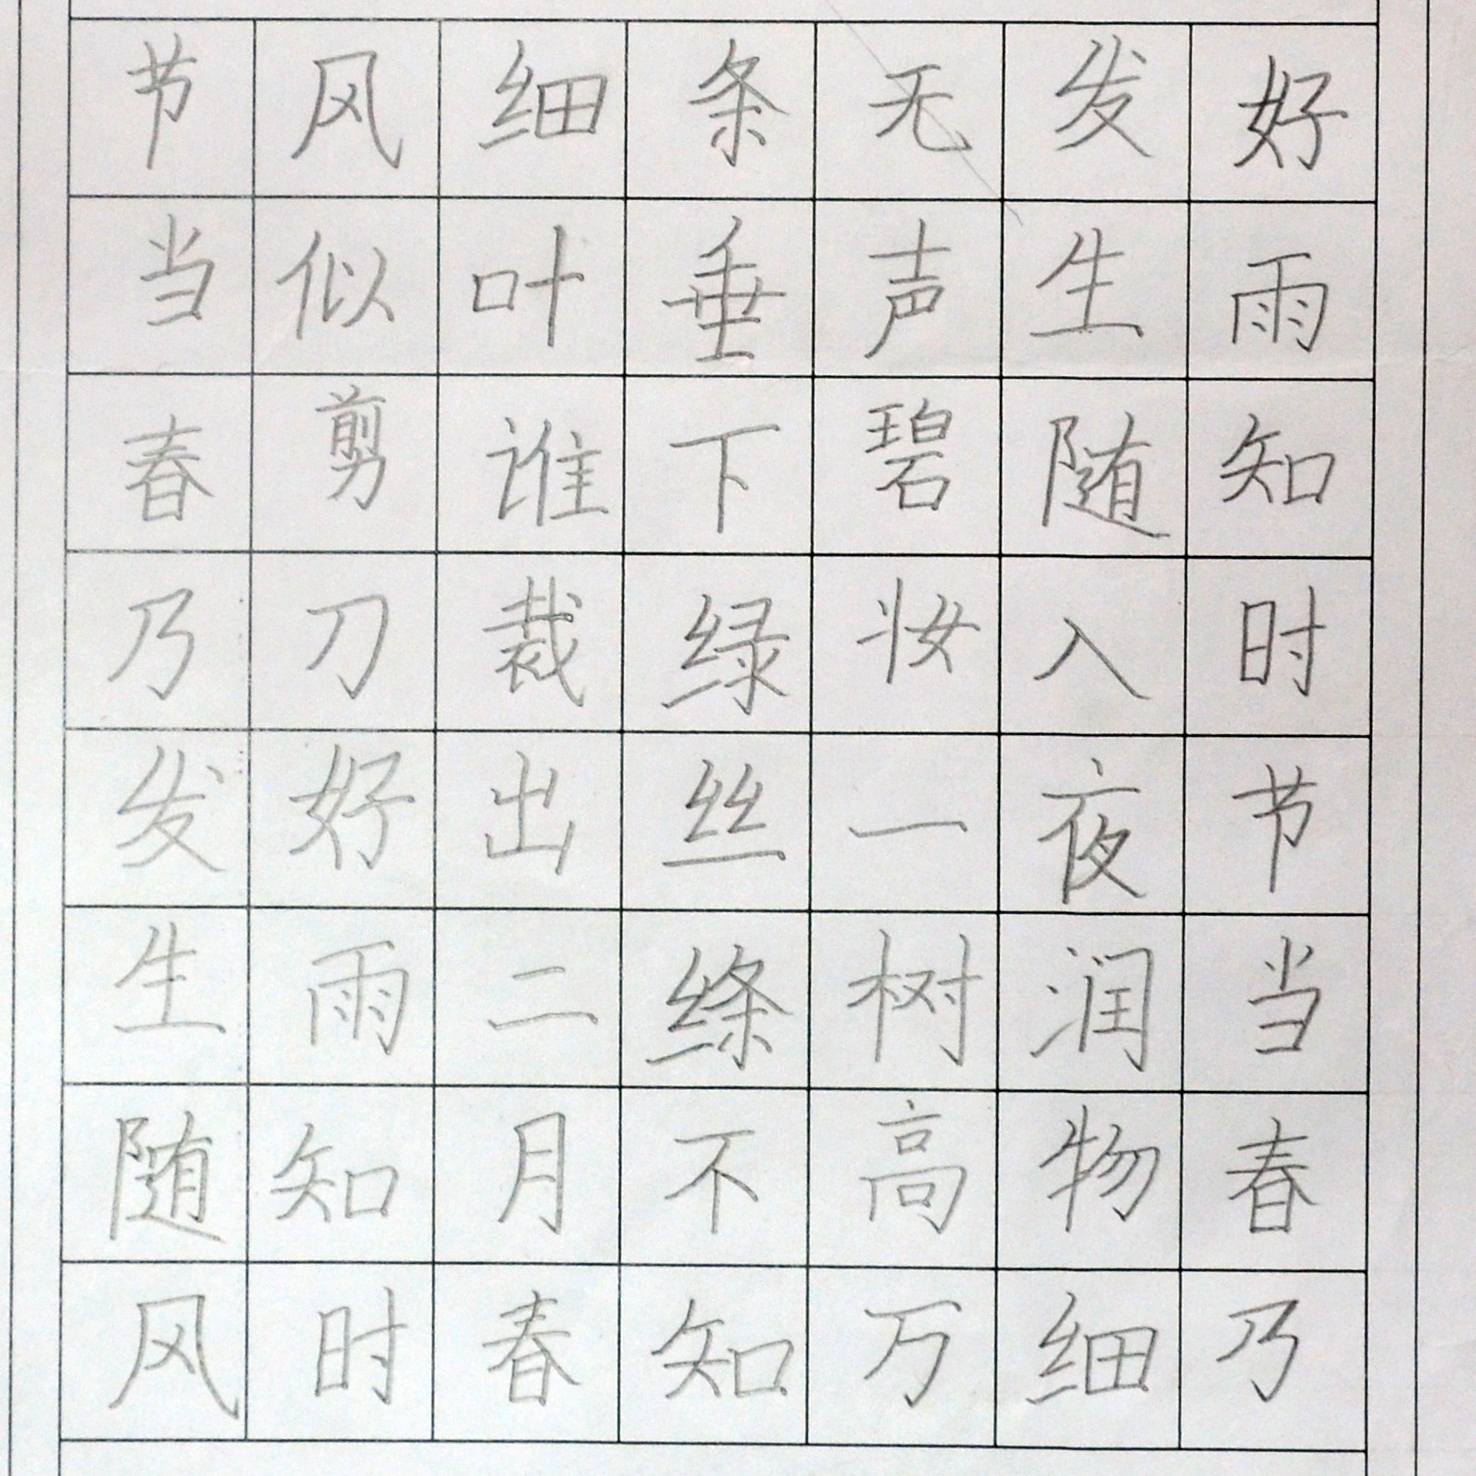 好雨知时节当春乃
发生随入夜润物细
无声碧妆一树高万
条垂下绿丝绦不知
细叶谁裁出二月春
风似剪刀好雨知时
节当春乃发生随风